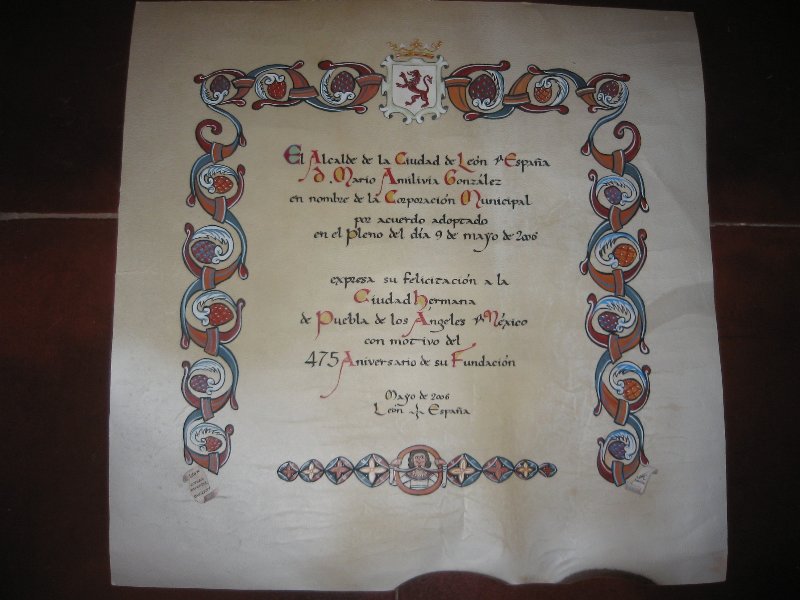 El Alcalde de la Ciudad de León España
D. Mario Amilivia González
en nombre de la Corporación Municipal
por acuerdo adoptado
en el Pleno del día 9 de mayo de 2006
expresa su felicitación a la
Ciudad hermana
de Puebla de los Ángeles México
con motivo del
475 Aniversario de su Fundación
Mayo de 2006
León España